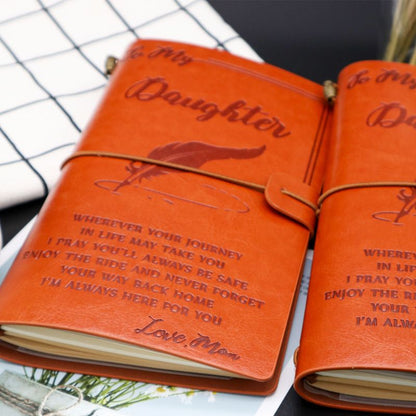 To My
Daughter
WHEREVER YOUR JOURNEY
IN LIFE MAY TAKE YOU
I PRAY YOU'LL ALWAYS BE SAFE
ENJOY THE RIDE AND NEVER FORGET
YOUR WAY BACK HOME
I'M ALWAYS HERE FOR YOU
Love, Mom
To My
Da
WHEREV
IN LI
I PRAY YO
ENJOY THE RI
YOUR
I'M ALWA